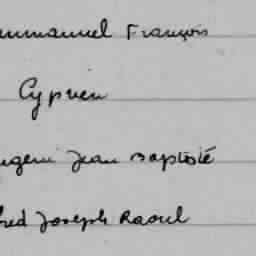 mmanuel François
Cyprien
ugene Jean Baptiste
red Joseph Raoul